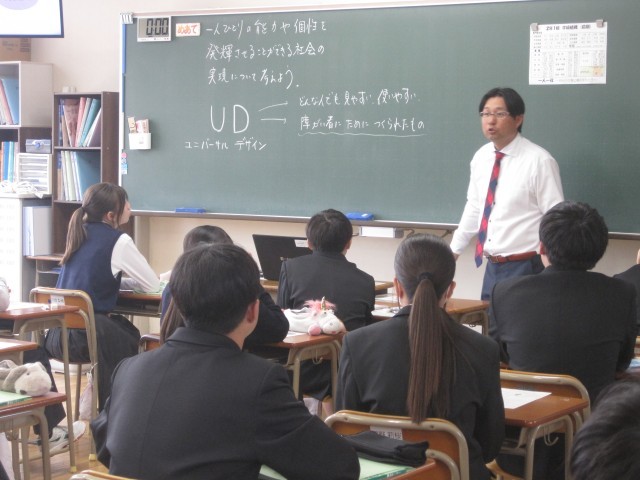 0:00
めあて
一人ひとりの能力や個性を
発揮させることができる社会の
実現について考えよう。
UD
ユニバーサル デザイン
どんな人でも見やすい、使いやすい、
障がい者にためにつくられたもの